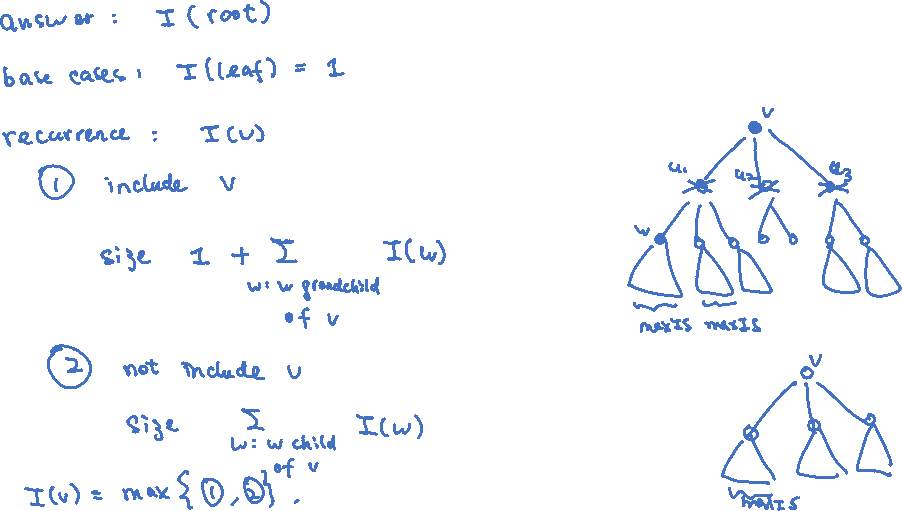 answer : I (root)
base cases : I(leaf) = 1
recurrence : I(v)
① include v
size 1 + Σ I(w)
w: w grandchild
of v
② not include v
size Σ I(w)
w: w child
of v
I(v) = max{①,②}.
v
u₁ u₂ u₃
w
maxIS maxIS
v
maxIS